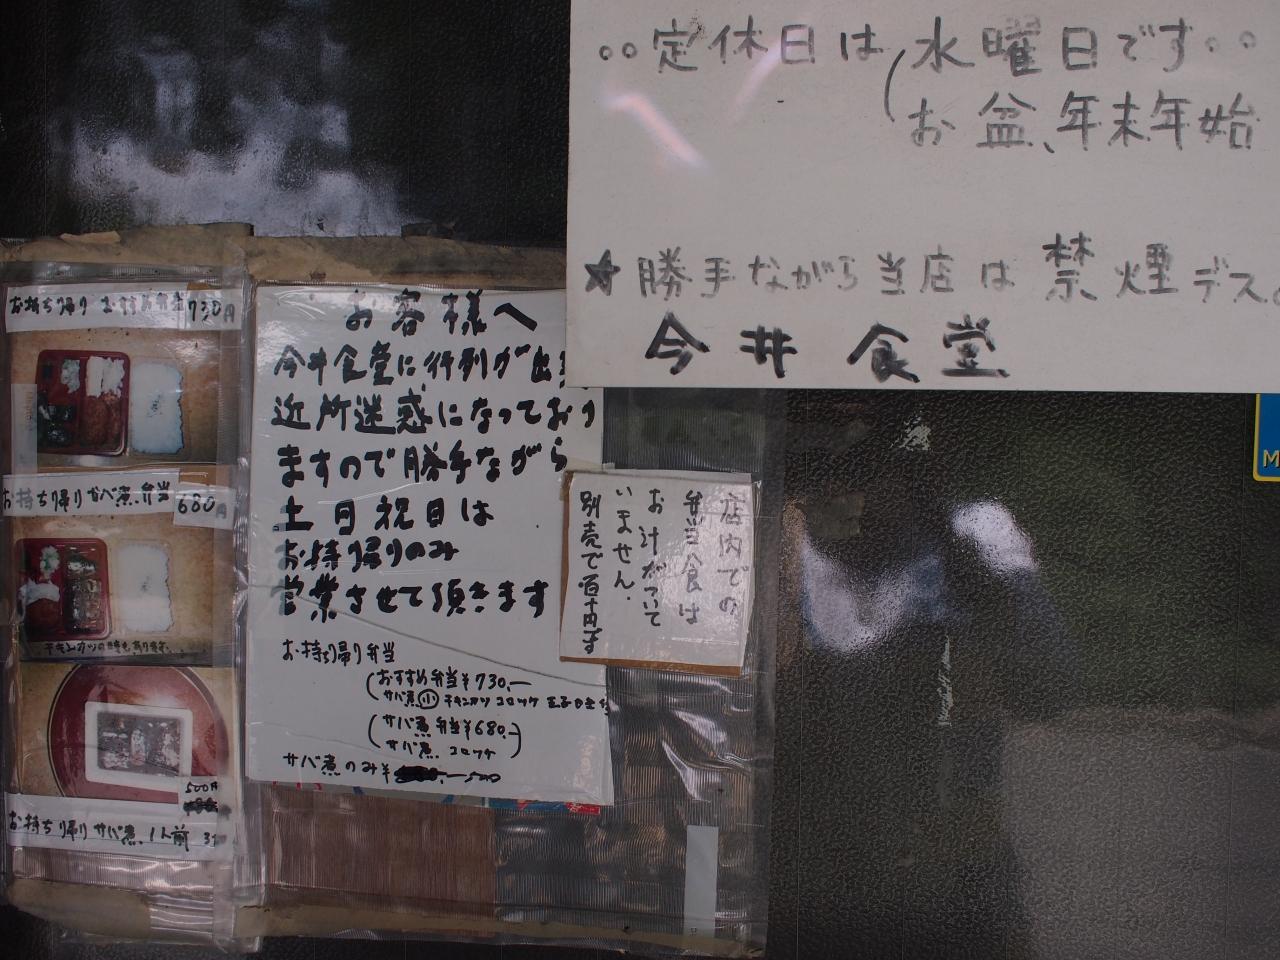 。。定休日は(水曜日です。。
お盆、年末年始
★勝手ながら当店は禁煙デス。
今井食堂
お持ち帰り おすすめ弁当730円
お持ち帰りサバ煮.弁当 680円
チキンカツの時もあります.
500円
お持ち帰りサバ煮.1人前
お客様へ
今井食堂に行列が出
近所迷惑になっており
ますので勝手ながら
土日祝日は
お持帰りのみ
営業させて頂きます
お持ち帰り弁当
(おすすめ弁当¥730.—
サバ煮小チキンカツ コロッケ
(サバ煮弁当¥680.—)
サバ煮. コロッケ
サバ煮のみ¥ 500
店内での
弁当食は
お汁がついて
いません.
別売で百十円です
M